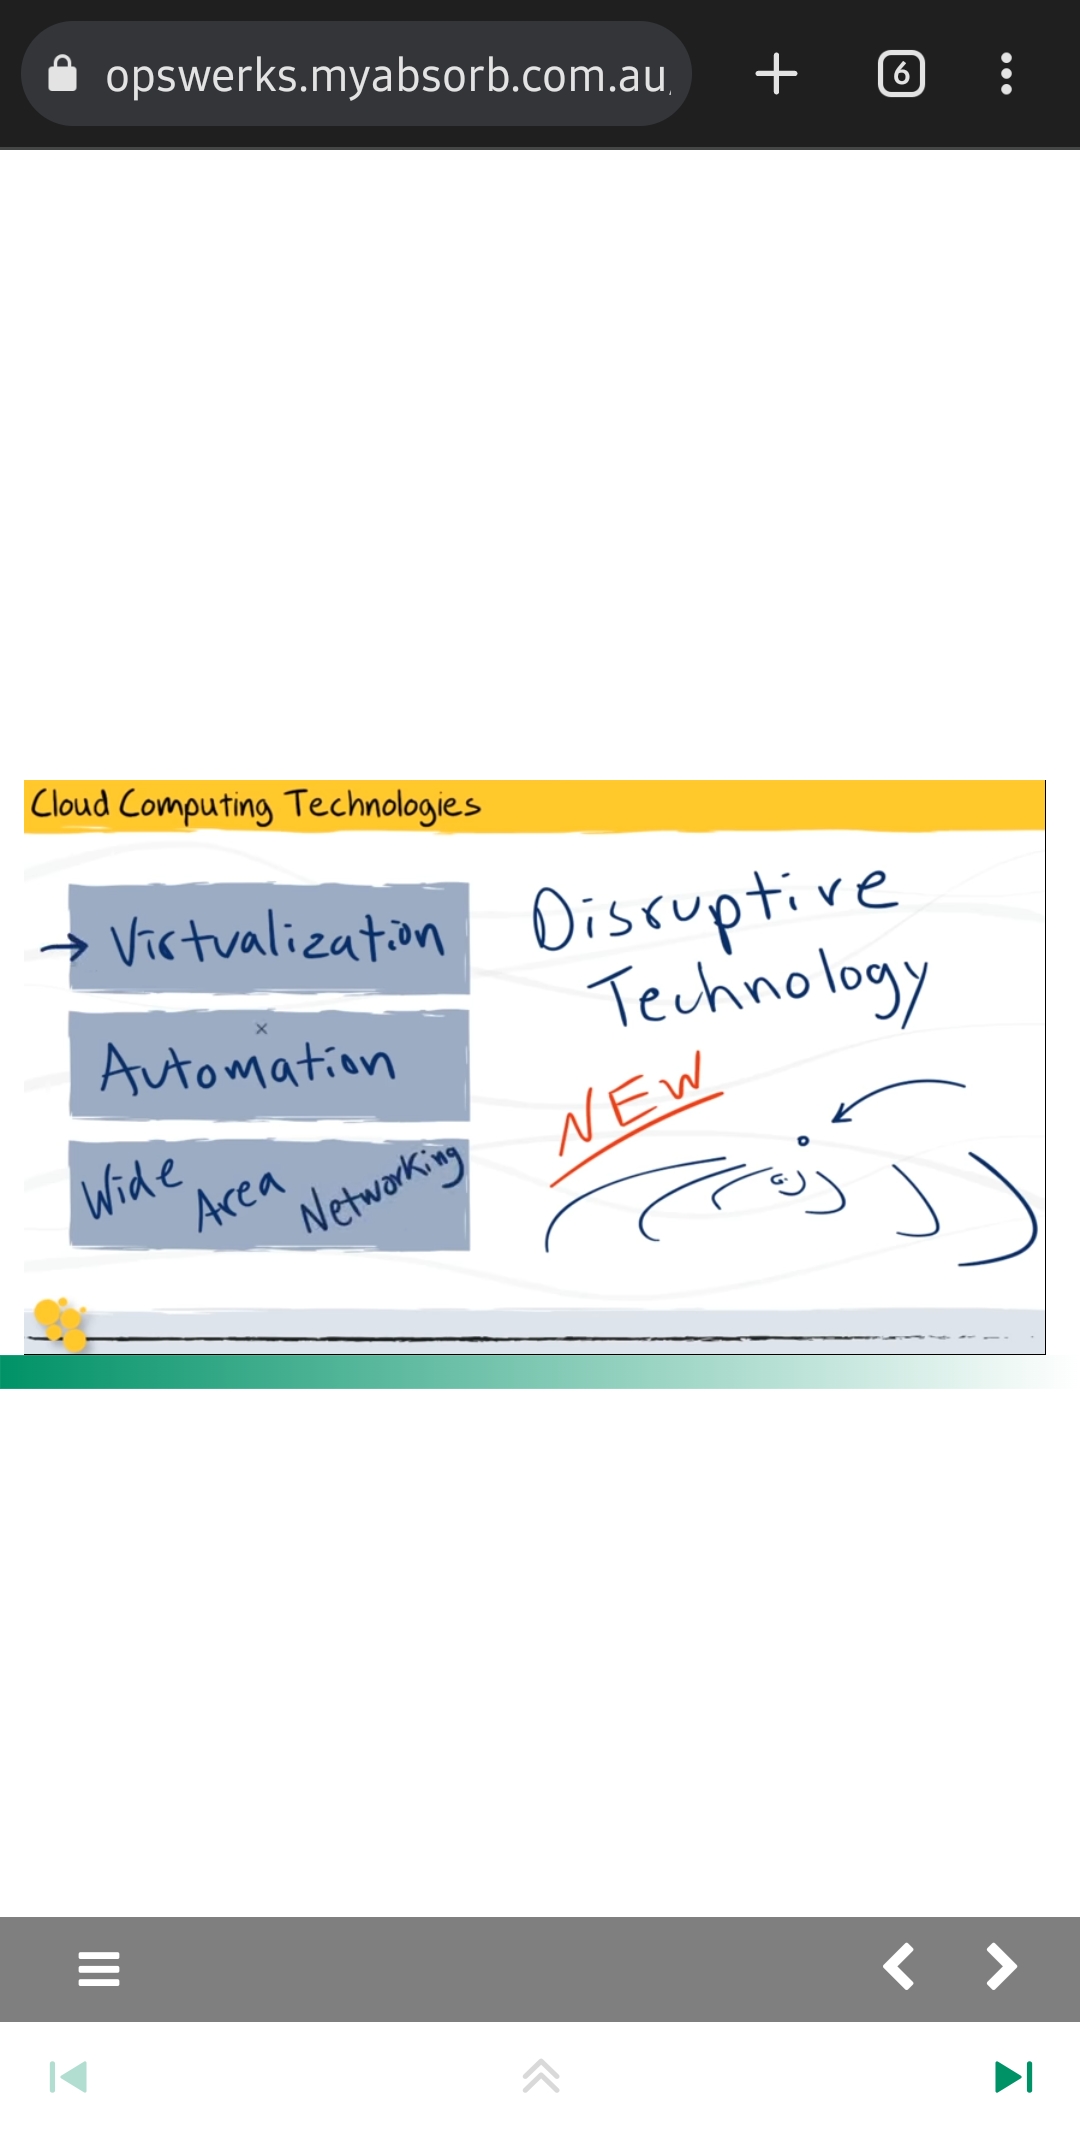 opswerks.myabsorb.com.au
6
Cloud Computing Technologies
→ Virtualization
Automation
Wide Area Networking
Disruptive
Technology
NEW